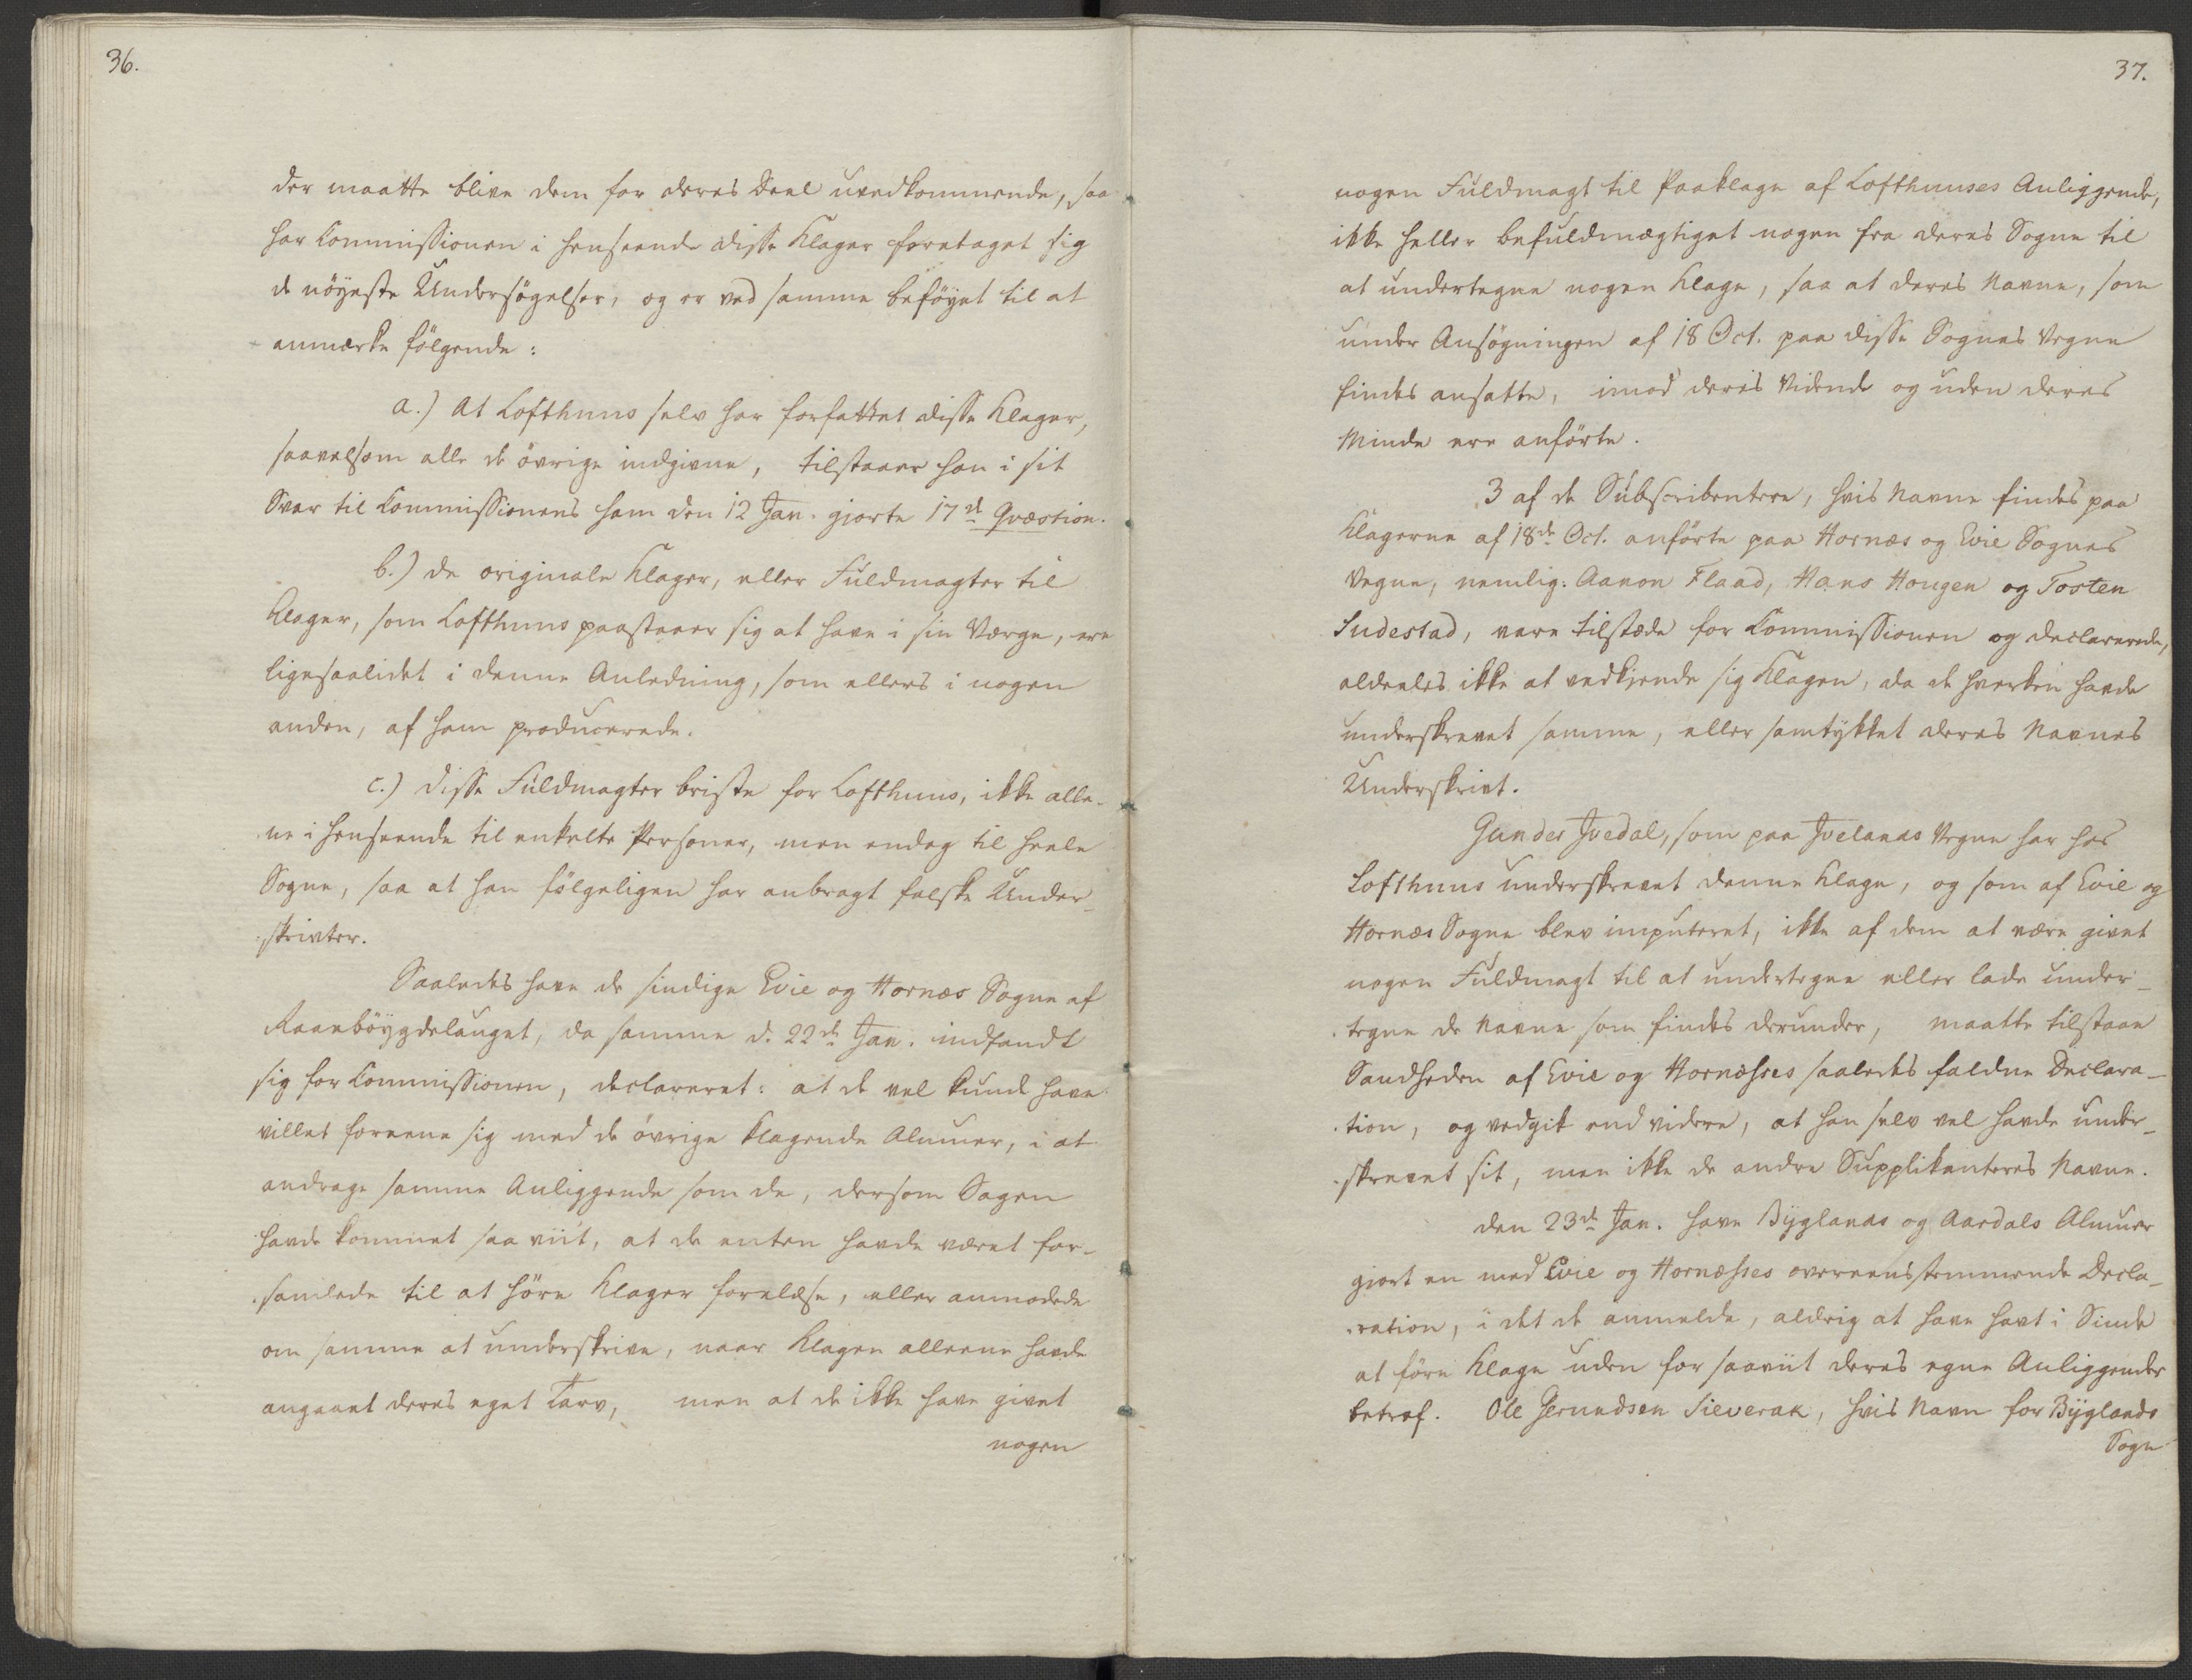 36.
der maatte blive dem for deres Deel uvedkommende, saa
har Commissionen i henseende disse Klager foretaget sig
de nöyeste Undersögelser, og er ved samme beföyet til at
anmærke fölgende:
a.) At Lofthuus selv har forfattet disse Klager,
saavelsom alle de övrige indgivne, tilstaaer han i sit
Svar til Commissionens ham den 12 Jan. giorte 17de Qvæstion.
b.) de originale Klager, eller Fuldmagter til
Klager, som Lofthuus paastaaer sig at have i sin Værge, ere
ligesaalidet i denne Anledning, som ellers i nogen
anden, af ham producerede.
c.) disse Fuldmagter briste for Lofthuus, ikke alle-
ne i henseende til enkelte Personer, men endog til heele
Sogne, saa at han fölgeligen har anbragt falske Under-
skrivter.
Saaledes have de sindige Evie og Hornæs Sogne af
Raaeböygdelauget, da samme d. 22de Jan. indfandt
sig for Commissionen, declareret: at de vel kunde have
villet foreene sig med de övrige klagende Almuer, i at
andrage samme Anliggende som de, dersom Sagen
havde kommet saa viit, at de enten havde været for-
samlede til at höre Klager forelæse, eller anmodede
om samme at underskrive, naar Klagen alleene havde
angaaet deres eget Tarv, men at de ikke have givet
nogen
37.
nogen Fuldmagt til Paaklage af Lofthuuses Anliggende,
ikke heller befuldmægtiget nogen fra deres Sogne til
at undertegne nogen Klage, saa at deres Navne, som
under Ansögningen af 18 Oct. paa disse Sognes Vegne
findes ansatte, imod deres Vidende og uden deres
Minde ere anförte.
3 af de Subscribentere, hvis Navne findes paa
Klagerne af 18de Oct. anförte paa Hornæs og Evie Sognes
Vegne, nemlig: Aanon Flaad, Hans Hougen og Tosten
Sudestad, vare tilstæde for Commissionen og declarerede,
aldeeles ikke at vedkjende sig Klagen, da de hverken havde
underskrevet samme, eller samtykket deres Navnes
Underskrivt.
Gunder Jvedal, som paa Jvelands Vegne har hos
Lofthuus underskrevet denne Klage, og som af Evie og
Hornæs Sogne blev imputeret, ikke af dem at være givet
nogen Fuldmagt til at undertegne eller lade under-
tegne de Navne som findes derunder, maatte tilstaae
Sandheden af Evie og Hornæsses saaledes faldne Declara-
tion, og vedgik end videre, at han selv vel havde under-
skrevet sit, men ikke de andre Supplikanteres Navne.
den 23de Jan. have Byglands og Aardals Almuer
giort en med Evie og Hornæsses overeensstemmende Decla-
ration, i det de anmelde, aldrig at have havt i Sinde
at före Klage uden for saaviit deres egne Anliggender
betraf. Ole Jerundsen Sieverak, hvis Navn for Byglands
Sogn